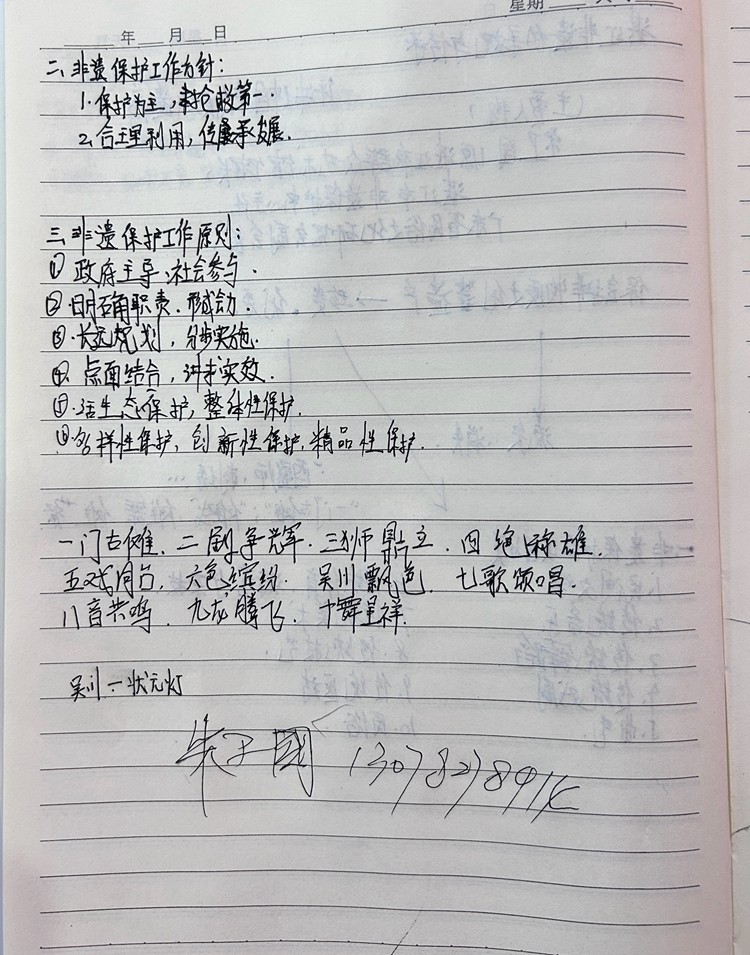 星期
年 月 日
二、非遗保护工作方针:
1. 保护为主, 抢救第一.
2. 合理利用, 传承发展.
三、非遗保护工作原则:
① 政府主导、社会参与.
② 明确职责、形成
③. 长远规划, 分步实施.
④. 点面结合, 讲求实效.
⑤. 活态保护, 整体性保护.
样性保护, 创新性保护, 精品性保护.
一门古傩. 二剧争辉. 三狮鼎立. 四绝称雄.
五戏同台. 六色缤纷. 吴川飘色. 七歌颂唱.
八音共鸣. 九龙腾飞. 十舞呈祥.
吴川 — 状元灯
國